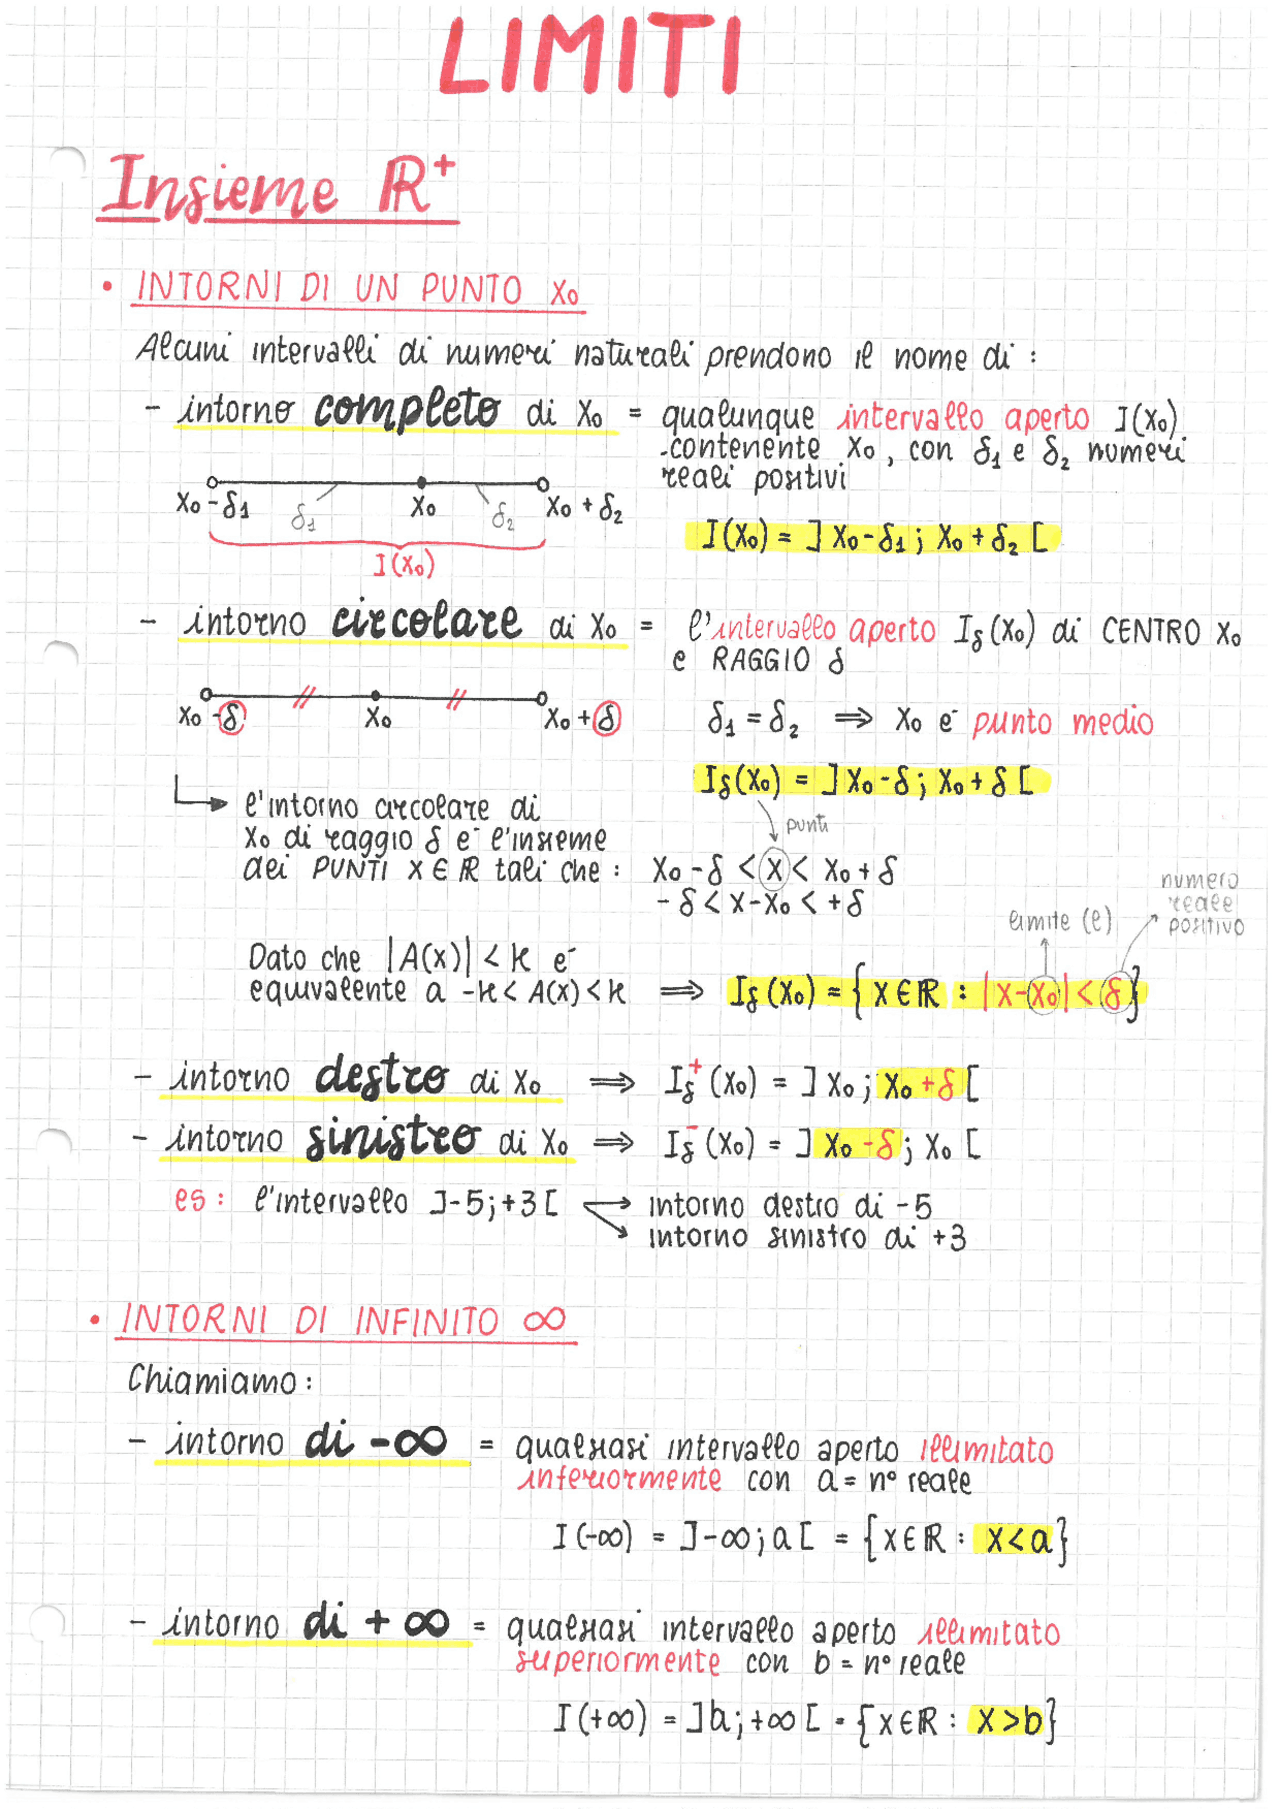 LIMITI
Insieme ℝ⁺
• INTORNI DI UN PUNTO x₀
Alcuni intervalli di numeri naturali prendono il nome di :
- intorno completo di x₀ = qualunque intervallo aperto I(x₀)
contenente x₀, con δ₁ e δ₂ numeri
reali positivi
x₀-δ₁ δ₁ x₀ δ₂ x₀+δ₂
I(x₀) = ]x₀-δ₁; x₀+δ₂[
I(x₀)
- intorno circolare di x₀ = l'intervallo aperto Iδ(x₀) di CENTRO x₀
e RAGGIO δ
x₀-δ x₀ x₀+δ
δ₁=δ₂ ⇒ x₀ è punto medio
Iδ(x₀) = ]x₀-δ; x₀+δ[
punti
l'intorno circolare di
x₀ di raggio δ è l'insieme
dei PUNTI x∈ℝ tali che : x₀-δ < x < x₀+δ
-δ < x-x₀ < +δ
numero
reale
positivo
limite (l)
Dato che |A(x)| < k è
equivalente a -k < A(x) < k ⇒ Iδ(x₀) = {x∈ℝ : |x-x₀| < δ}
- intorno destro di x₀ ⇒ Iδ⁺(x₀) = ]x₀; x₀+δ[
- intorno sinistro di x₀ ⇒ Iδ⁻(x₀) = ]x₀-δ; x₀[
es: l'intervallo ]-5;+3[ → intorno destro di -5
intorno sinistro di +3
• INTORNI DI INFINITO ∞
Chiamiamo:
- intorno di -∞ = qualsiasi intervallo aperto illimitato
inferiormente con a = n° reale
I(-∞) = ]-∞;a[ = {x∈ℝ : x<a}
- intorno di +∞ = qualsiasi intervallo aperto illimitato
superiormente con b = n° reale
I(+∞) = ]b;+∞[ = {x∈ℝ : x>b}